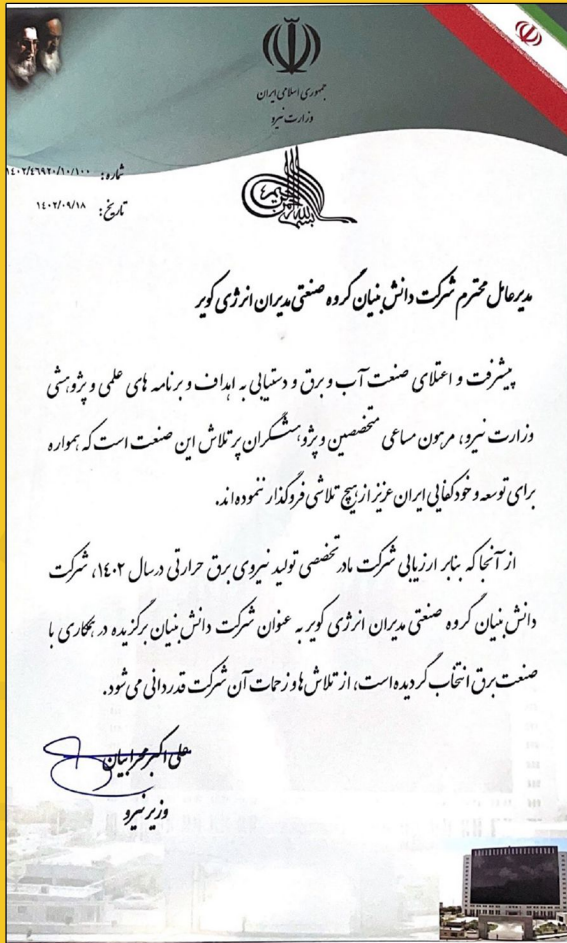 جمهوری اسلامی ایران
وزارت نیرو
شماره: ۱۴۰۲/۴۶۹۲۰/۱۰/۱۰۰
تاریخ: ۱۴۰۲/۰۹/۱۸
بسم الله الرحمن الرحیم
مدیرعامل محترم شرکت دانش بنیان گروه صنعتی مدیران انرژی کویر
پیشرفت و اعتلای صنعت آب و برق و دستیابی به اهداف و برنامه های علمی و پژوهشی
وزارت نیرو، مرهون مساعی متخصصین و پژوهشگران پرتلاش این صنعت است که همواره
برای توسعه و خودکفایی ایران عزیز از هیچ تلاشی فروگذار ننموده اند.
از آنجا که بنابر ارزیابی شرکت مادرتخصصی تولید نیروی برق حرارتی درسال ۱۴۰۲، شرکت
دانش بنیان گروه صنعتی مدیران انرژی کویر به عنوان شرکت دانش بنیان برگزیده در همکاری با
صنعت برق انتخاب گردیده است، از تلاش ها و زحمات آن شرکت قدردانی می شود.
علی اکبر محرابیان
وزیر نیرو